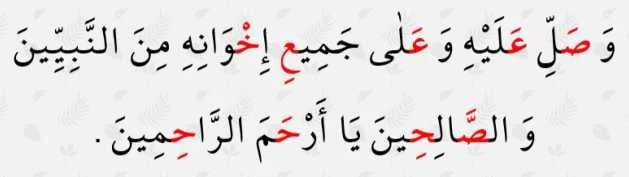 وَ صَلِّ عَلَيْهِ وَ عَلٰى جَمِيعِ إِخْوَانِهِ مِنَ النَّبِيِّينَ
وَ الصَّالِحِينَ يَا أَرْحَمَ الرَّاحِمِينَ .